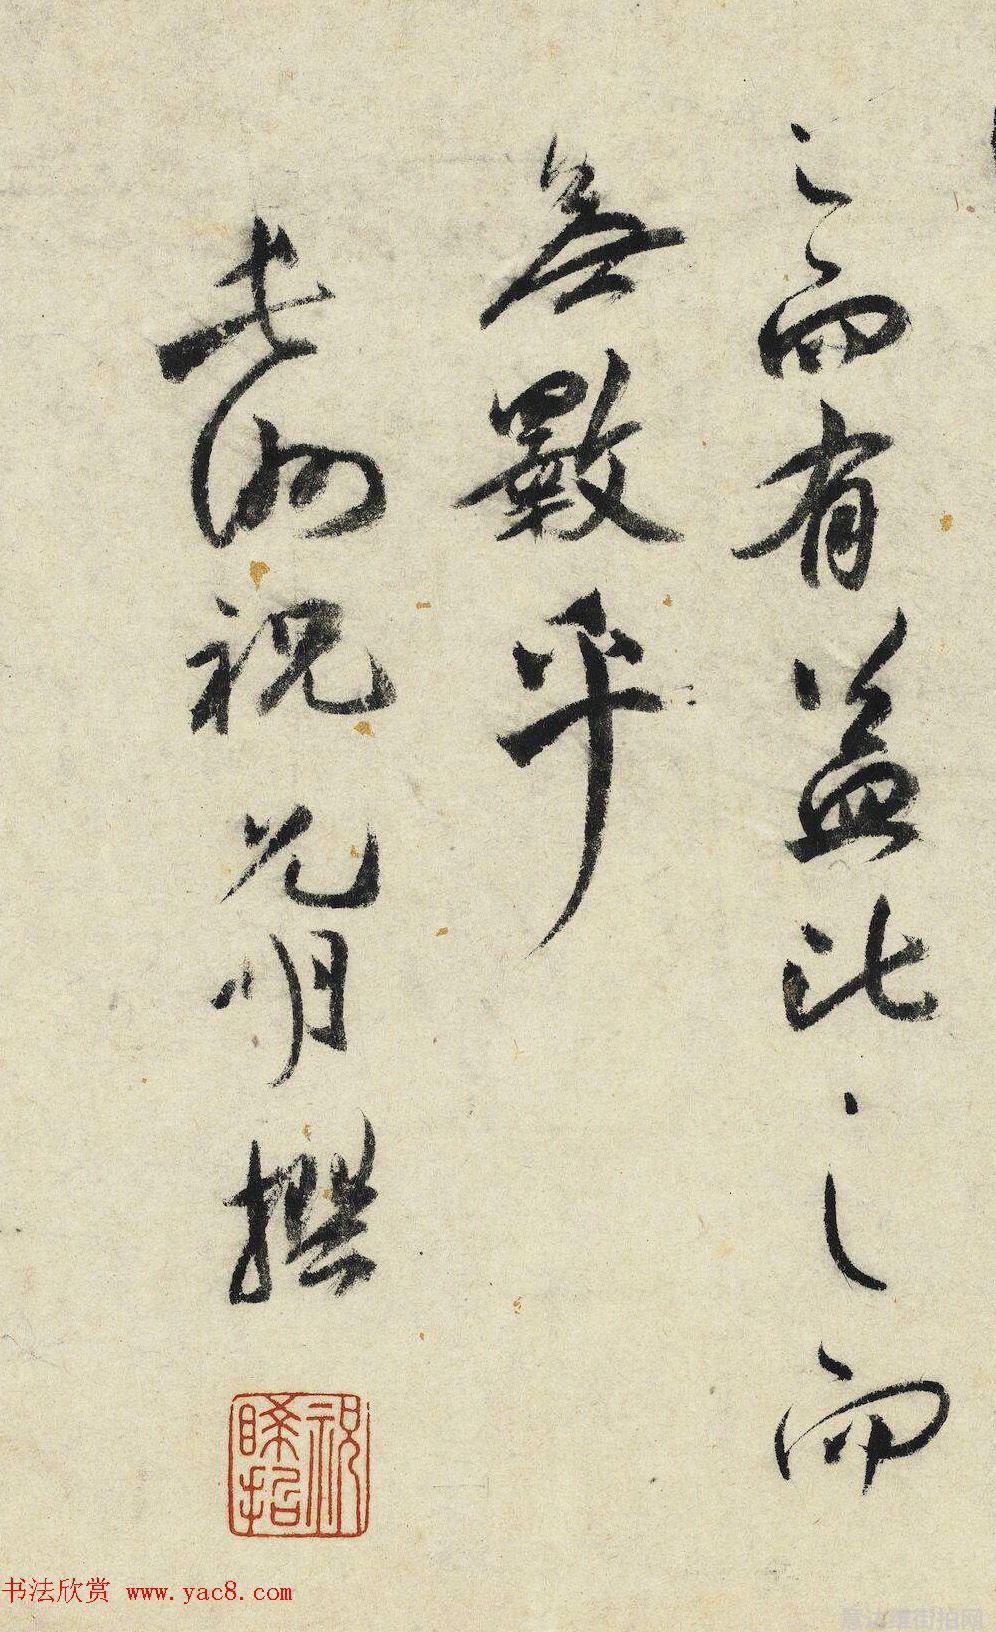 之而有益比之而
無斁乎
長洲祝允明撰
祝
睎哲
书法欣赏 www.yac8.com